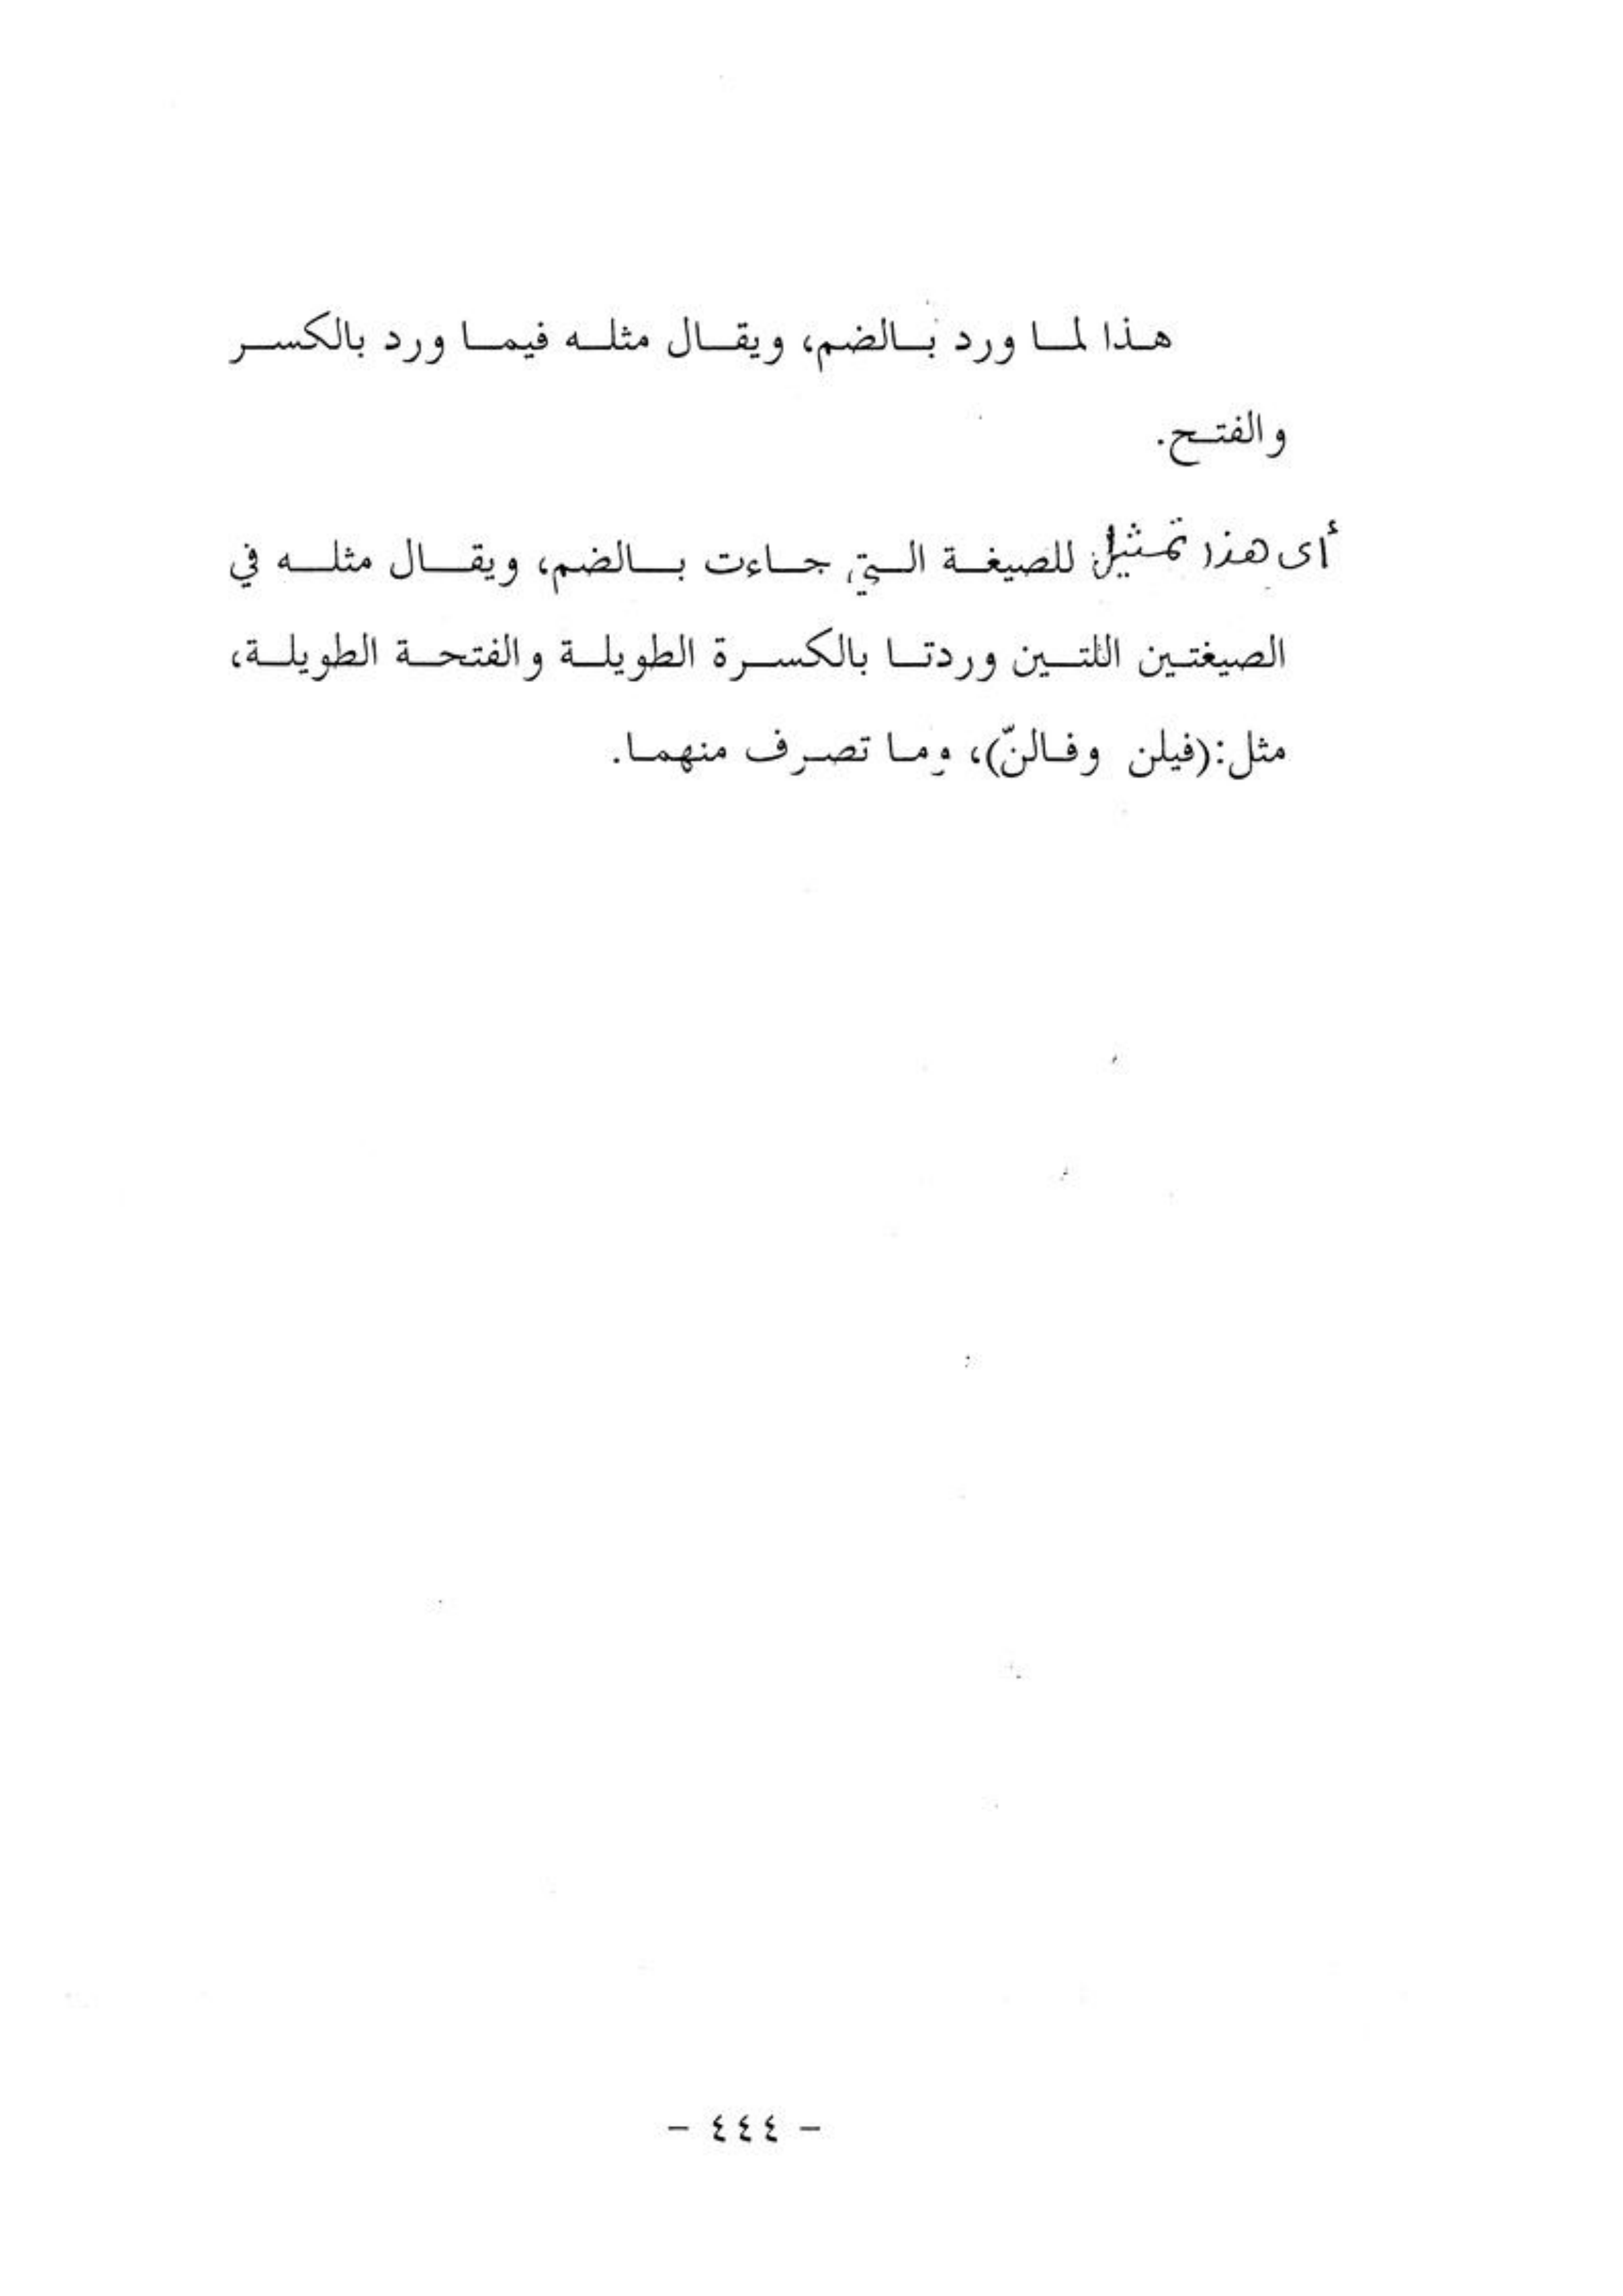 هذا لما ورد بالضم، ويقال مثله فيما ورد بالكسر
والفتح.
أى هذا تمثيل للصيغة التي جاءت بالضم، ويقال مثله في
الصيغتين اللتين وردتا بالكسرة الطويلة والفتحة الطويلة،
مثل:(فيلن وفالنّ)، وما تصرف منهما.
- ٤٤٤ -